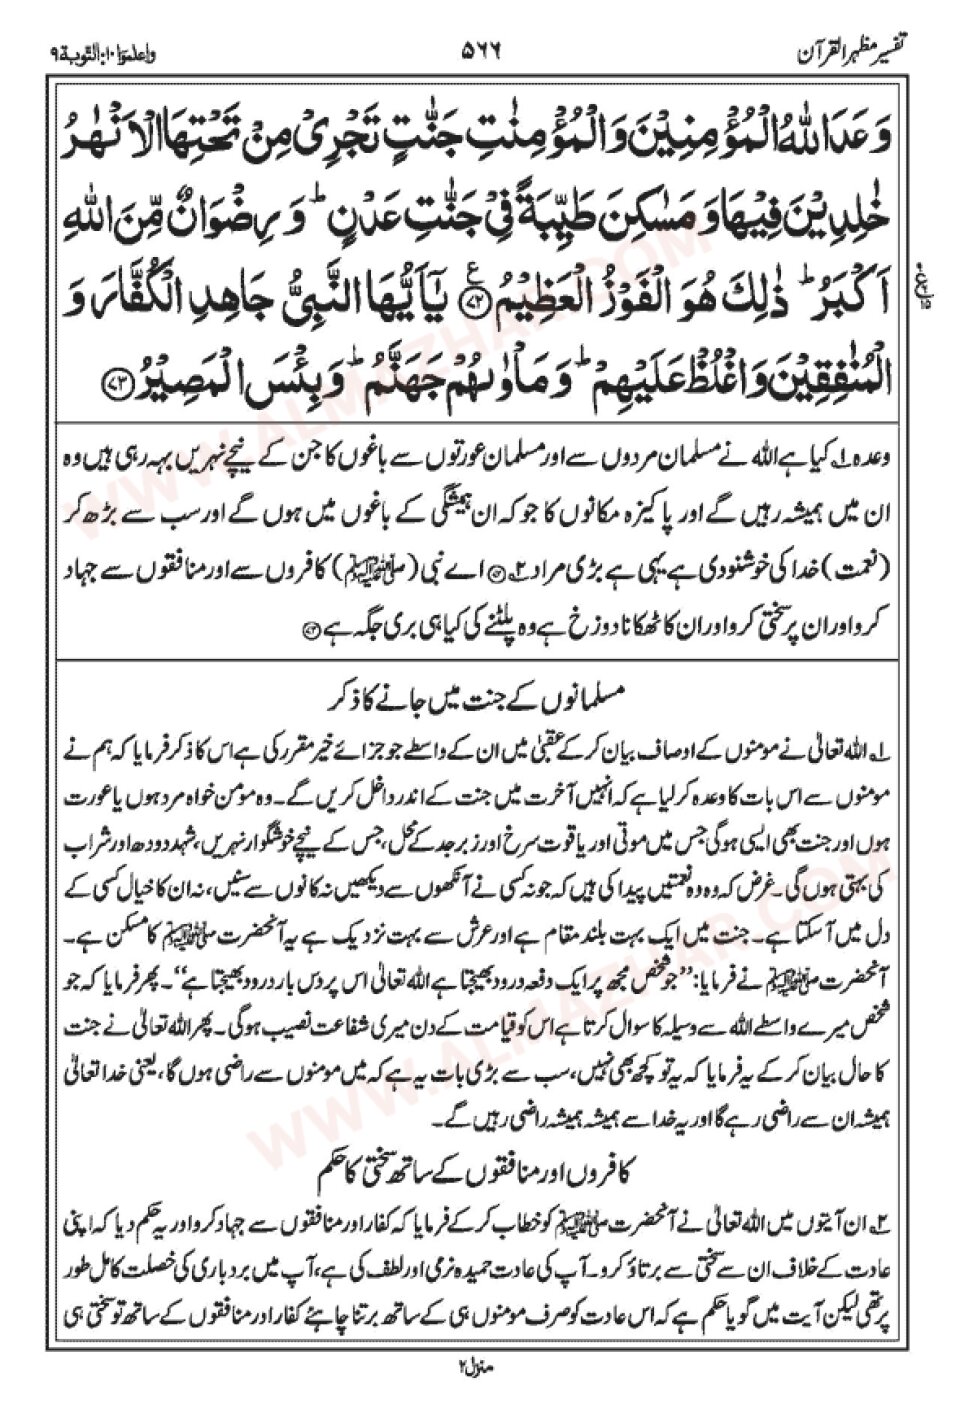 تفسیر مظہر القرآن
۵۶۶
واعلموا۱۰:التوبۃ۹
وَعَدَ اللّٰهُ الْمُؤْمِنِيْنَ وَالْمُؤْمِنٰتِ جَنّٰتٍ تَجْرِيْ مِنْ تَحْتِهَا الْاَنْهٰرُ
خٰلِدِيْنَ فِيْهَا وَ مَسٰكِنَ طَيِّبَةً فِيْ جَنّٰتِ عَدْنٍ ؕ وَرِضْوَانٌ مِّنَ اللّٰهِ
اَكْبَرُ ؕ ذٰلِكَ هُوَ الْفَوْزُ الْعَظِيْمُ ﴿۷۲﴾ ع يٰۤاَيُّهَا النَّبِيُّ جَاهِدِ الْكُفَّارَ وَ
الْمُنٰفِقِيْنَ وَاغْلُظْ عَلَيْهِمْ ؕ وَمَاْوٰىهُمْ جَهَنَّمُ ؕ وَبِئْسَ الْمَصِيْرُ ﴿۷۳﴾
وعدہ ۱؎ کیا ہے اللہ نے مسلمان مردوں سے اور مسلمان عورتوں سے باغوں کا جن کے نیچے نہریں بہہ رہی ہیں وہ
ان میں ہمیشہ رہیں گے اور پاکیزہ مکانوں کا جو کہ ان ہمیشگی کے باغوں میں ہوں گے اور سب سے بڑھ کر
(نعمت) خدا کی خوشنودی ہے یہی ہے بڑی مراد ۲؎ ﴿۷۲﴾ اے نبی (ﷺ) کافروں سے اور منافقوں سے جہاد
کرو اور ان پر سختی کرو اور ان کا ٹھکانا دوزخ ہے وہ پلٹنے کی کیا ہی بری جگہ ہے ﴿۷۳﴾
مسلمانوں کے جنت میں جانے کا ذکر
۱؎ اللہ تعالیٰ نے مومنوں کے اوصاف بیان کر کے عقبیٰ میں ان کے واسطے جو جزائے خیر مقرر کی ہے اس کا ذکر فرمایا کہ ہم نے
مومنوں سے اس بات کا وعدہ کر لیا ہے کہ انہیں آخرت میں جنت کے اندر داخل کریں گے۔ وہ مومن خواہ مرد ہوں یا عورت
ہوں اور جنت بھی ایسی ہوگی جس میں موتی اور یاقوت سرخ اور زبرجد کے محل، جس کے نیچے خوشگوار نہریں، شہد دودھ اور شراب
کی بہتی ہوں گی۔ غرض کہ وہ وہ نعمتیں پیدا کی ہیں کہ جو نہ کسی نے آنکھوں سے دیکھیں نہ کانوں سے سنیں، نہ ان کا خیال کسی کے
دل میں آ سکتا ہے۔ جنت میں ایک بہت بلند مقام ہے اور عرش سے بہت نزدیک ہے یہ آنحضرت ﷺ کا مسکن ہے۔
آنحضرت ﷺ نے فرمایا: ”جو شخص مجھ پر ایک دفعہ درود بھیجتا ہے اللہ تعالیٰ اس پر دس بار درود بھیجتا ہے“۔ پھر فرمایا کہ جو
شخص میرے واسطے اللہ سے وسیلہ کا سوال کرتا ہے اس کو قیامت کے دن میری شفاعت نصیب ہوگی۔ پھر اللہ تعالیٰ نے جنت
کا حال بیان کر کے یہ فرمایا کہ یہ تو کچھ بھی نہیں، سب سے بڑی بات یہ ہے کہ میں مومنوں سے راضی ہوں گا، یعنی خدا تعالیٰ
ہمیشہ ان سے راضی رہے گا اور یہ خدا سے ہمیشہ ہمیشہ راضی رہیں گے۔
کافروں اور منافقوں کے ساتھ سختی کا حکم
۲؎ ان آیتوں میں اللہ تعالیٰ نے آنحضرت ﷺ کو خطاب کر کے فرمایا کہ کفار اور منافقوں سے جہاد کرو اور یہ حکم دیا کہ اپنی
عادت کے خلاف ان سے سختی سے برتاؤ کرو۔ آپ کی عادت حمیدہ نرمی اور لطف کی ہے، آپ میں بردباری کی خصلت کامل طور
پر تھی لیکن آیت میں گویا حکم ہے کہ اس عادت کو صرف مومنوں ہی کے ساتھ برتنا چاہئے کفار اور منافقوں کے ساتھ تو سختی ہی
منزل۲
WWW.ALMAZHAR.COM
WWW.ALMAZHAR.COM